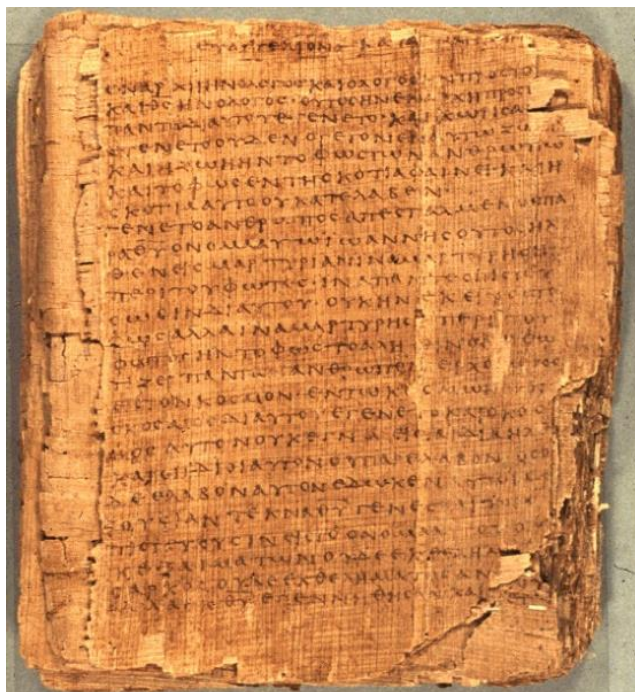 ΕΥΑΓΓΕΛΙΟΝ ΚΑΤΑ
ΕΝΑΡΧΗΗΝΟΛΟΓΟΣΚΑΙΟΛΟΓΟΣΗΝΠΡΟΣΤΟ
ΚΑΙΘΣΗΝΟΛΟΓΟΣ·ΟΥΤΟΣΗΝΕΝΑΡΧΗΠΡΟΣΤ
ΠΑΝΤΑΔΙΑΥΤΟΥΕΓΕΝΕΤΟ·ΚΑΙΧΩΡΙΣΑΥ
ΕΓΕΝΕΤΟΟΥΔΕΝΟΓΕΓΟΝΕΝΕΝΑΥΤΩΖΩ
ΚΑΙΗΖΩΗΗΝΤΟΦΩΣΤΩΝΑΝΘΡΩΠΩ
ΚΑΙΤΟΦΩΣΕΝΤΗΣΚΟΤΙΑΦΑΙΝΕΙ·ΚΑΙΗ
ΣΚΟΤΙΑΑΥΤΟΟΥΚΑΤΕΛΑΒΕΝ·
ΕΓΕΝΕΤΟΑΝΘΡΩΠΟΣΑΠΕΣΤΑΛΜΕΝΟΣΠΑ
ΡΑΘΥΟΝΟΜΑΑΥΤΩΙΩΑΝΝΗΣΟΥΤΟΣΗΛ
ΘΕΝΕΙΣΜΑΡΤΥΡΙΑΝΙΝΑΜΑΡΤΥΡΗΣΗ
ΠΕΡΙΤΟΥΦΩΤΟΣ·ΙΝΑΠΑΝΤΕΣΠΙΣΤΕΥ
ΣΩΣΙΝΔΙΑΥΤΟΥ·ΟΥΚΗΝΕΚΕΙΝΟΣΤΟ
ΦΩΣΑΛΛΑΙΝΑΜΑΡΤΥΡΗΣΗΠΕΡΙΤΟΥ
ΦΩΤΟΣΗΝΤΟΦΩΣΤΟΑΛΗΘΙΝΟΝΟΦΩ
ΤΙΖΕΙΠΑΝΤΑΑΝΘΡΩΠΟΝΕΡΧΟΜΕΝΟΝ
ΕΙΣΤΟΝΚΟΣΜΟΝ·ΕΝΤΩΚΟΣΜΩΗΝΚΑΙΟ
ΚΟΣΜΟΣΔΙΑΥΤΟΥΕΓΕΝΕΤΟΚΑΙΟΚΟΣ
ΜΟΣΑΥΤΟΝΟΥΚΕΓΝΩΕΙΣΤΑΙΔΙΑΗΛ
ΚΑΙΟΙΙΔΙΟΙΑΥΤΟΝΟΥΠΑΡΕΛΑΒΟΝ·ΟΣΟΙ
ΔΕΕΛΑΒΟΝΑΥΤΟΝΕΔΩΚΕΝΑΥΤΟΙΣΕ
ΞΟΥΣΙΑΝΤΕΚΝΑΘΥΓΕΝΕΣΘΑΙΤΟΙΣ
ΠΙΣΤΕΥΟΥΣΙΝΕΙΣΤΟΟΝΟΜΑ
ΚΕΞΑΙΜΑΤΩΝΟΥΔΕΕΚΘΕΛΗΜΑ
ΣΑΡΚΟΣΟΥΔΕΕΚΘΕΛΗΜΑΤΟΣΑΝ
ΔΡΟΣΑΛΛΕΚΘΥΕΓΕΝΝΗΘΗΣΑΝΚΑΙ